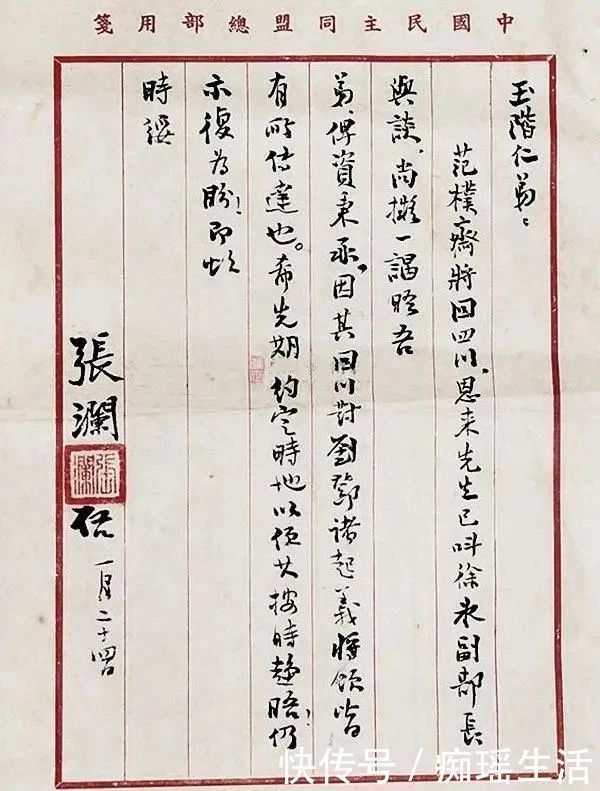 中國民主同盟總部用箋
玉階仁弟：
范樸齋將回四川，恩来先生已叫徐冰副部長
與談，尚擬一謁晤吾
弟，俾資秉承，因其回川對劉鄧諸起義將領皆
有所传達也。希先期约定時地以便其按時趨晤，仍
示復为盼！即頌
時綏
張瀾
張瀾
啓
一月二十四
快传号／痴瑶生活